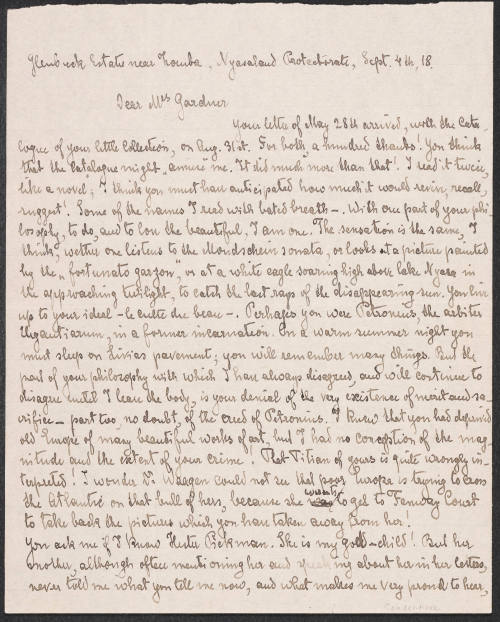 Glenbreck Estate near Zomba, Nyasaland Protectorate, Sept. 4th, 18.
Dear Mrs Gardner
Your letter of May 28th arrived, with the Cata-
logue of your little Collection, on Aug. 31st. For both, a hundred thanks! You think
that the Catalogue might "amuse" me. It did much more than that! I read it twice,
like a novel; I think you must have anticipated how much it would revive, recall,
suggest! Some of the names I read with bated breath –. With one part of your phi-
losophy, to do, and to love the beautiful, I am one. The sensation is the same, I
think, wether one listens to the Mondschein sonata, or looks at a picture painted
by the "fortunato garzon", or at a white eagle soaring high above lake Nyasa in
the approaching twilight, to catch the last rays of the disappearing sun. You live
up to your ideal – le culte du beau –. Perhaps you were Petronius, the arbiter
elegantiarum, in a former incarnation. On a warm summer night you
must sleep on Livias pavement; you will remember many things. But the
part of your philosophy with which I have always disagreed, and will continue to
disagree until I leave the body, is your denial of the very existence of merit and sa-
crifice – part too, no doubt, of the creed of Petronius. I knew that you had deprived
old Europe of many beautiful works of art, but I had no conception of the mag-
nitude and the extent of your crime! That Titian of yours is quite wrongly in-
terpreted! I wonder Dr. Waagen could not see that poor Europa is trying to cross
the Atlantic on that bull of hers, because she wants to get to Fenway Court
to take back the pictures which you have taken away from her!
You ask me if I know Hester Pickman. She is my god-child! But her
mother, although often mentioning her and speaking about her in her letters,
never told me what you tell me now, and what makes me very proud to hear,